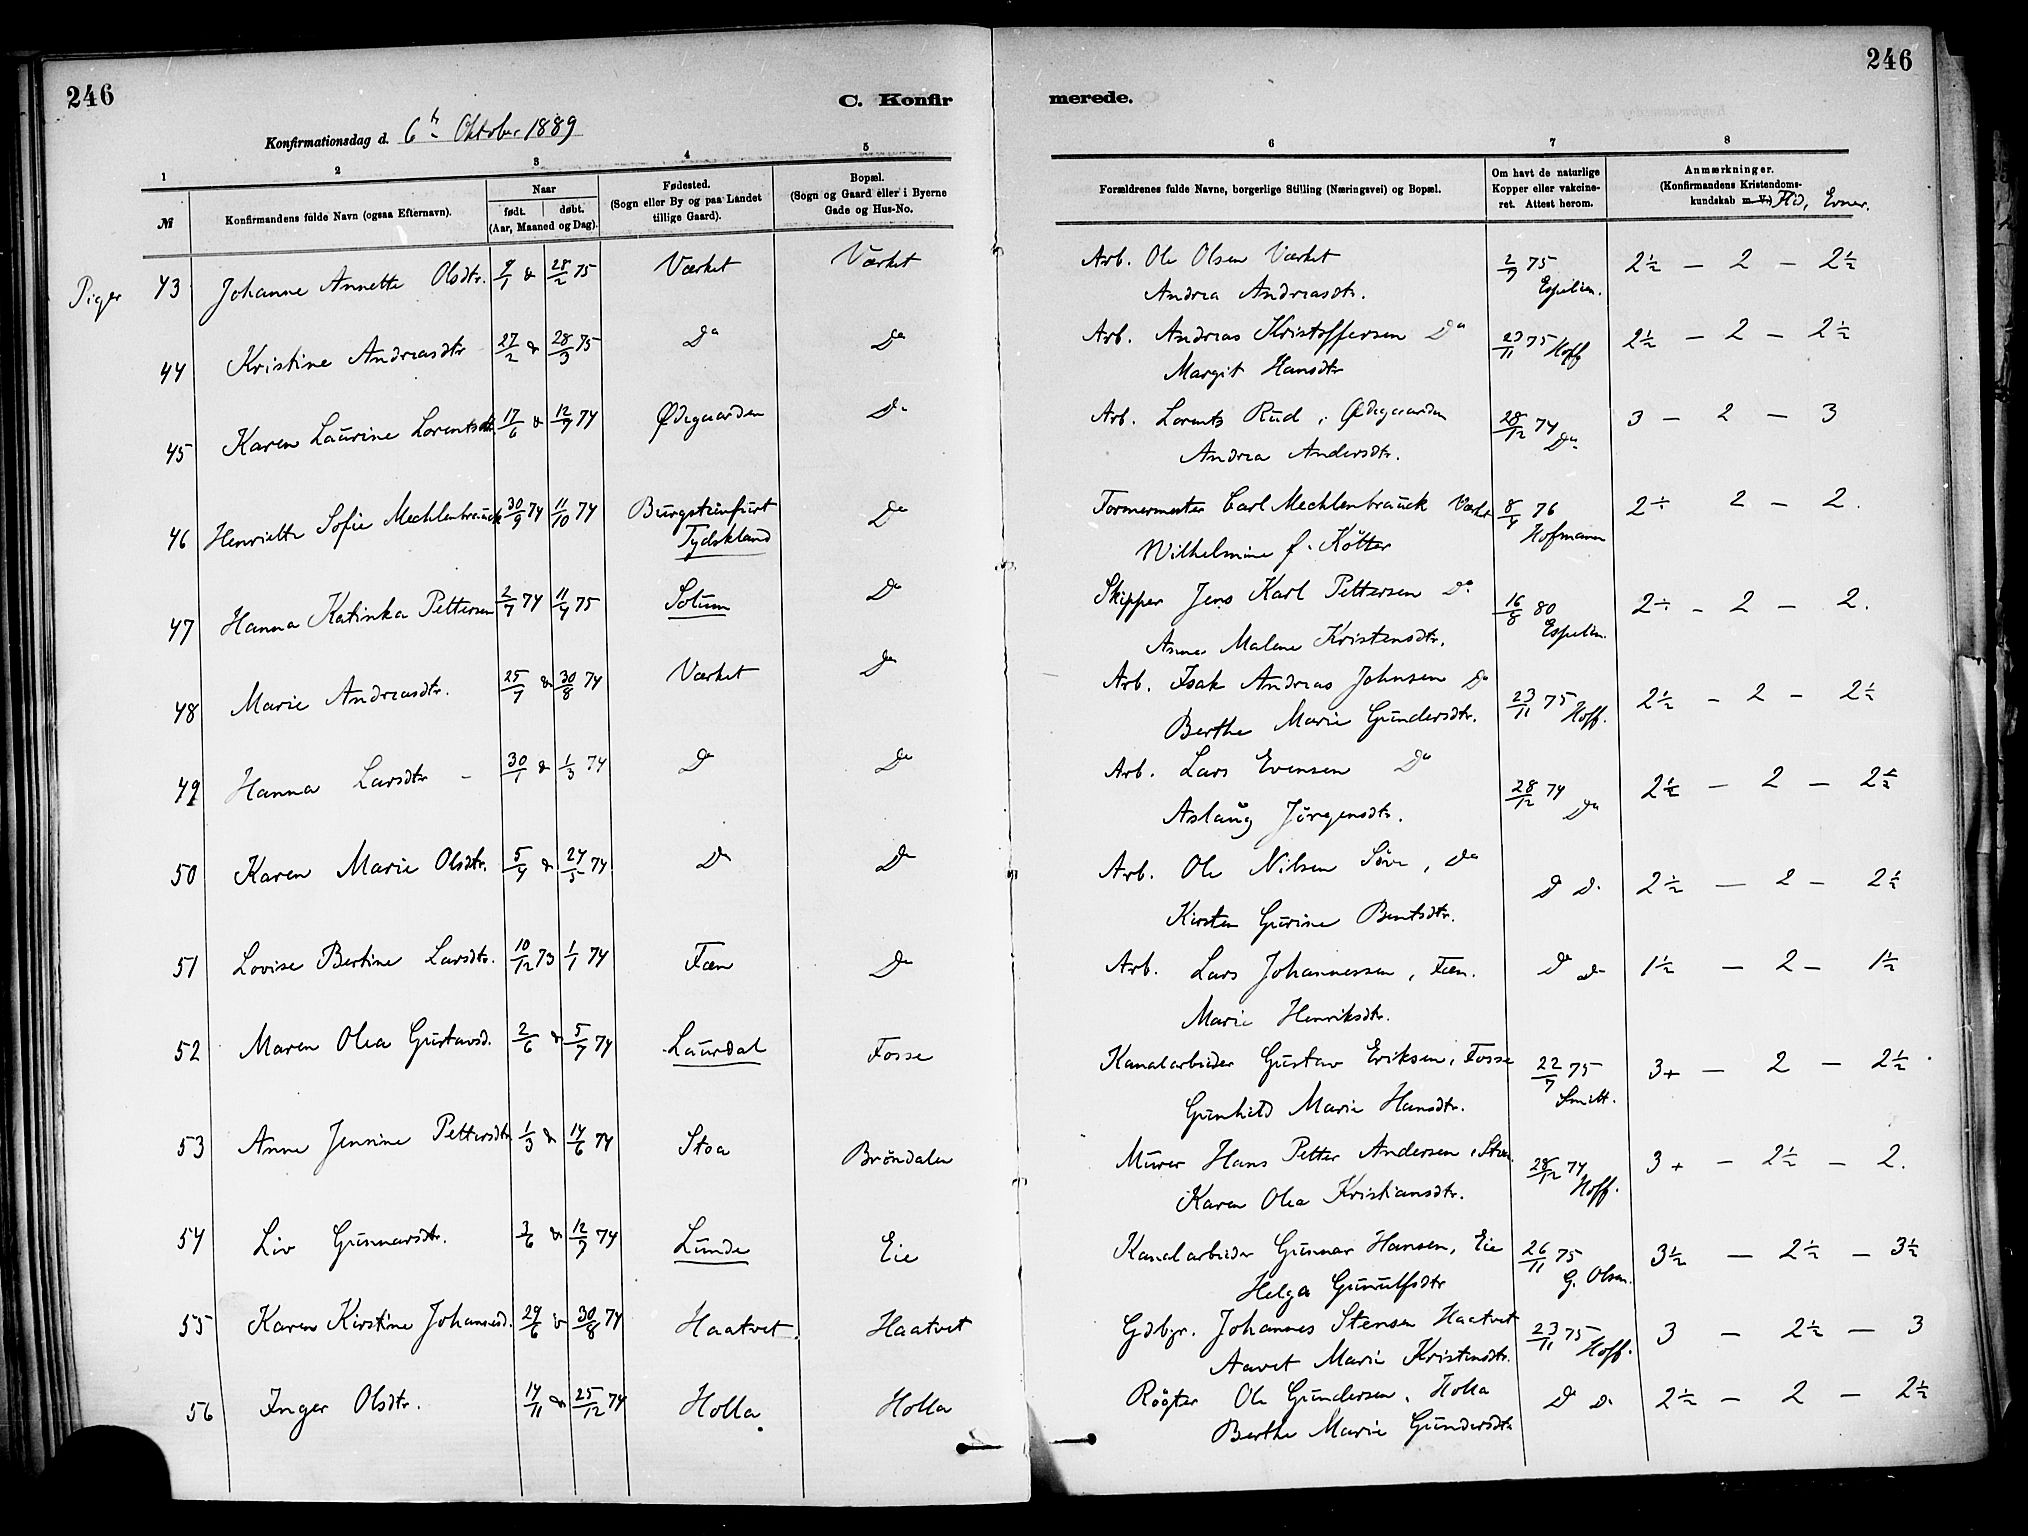 246
C. Konfir
merede.
246
Konfirmationsdag d. 6te Oktober 1889
1 2 3 4 5 6 7 8
№ Konfirmandens fulde Navn (ogsaa Efternavn). Naar født. døbt. (Aar, Maaned og Dag). Fødested. (Sogn eller By og paa Landet tillige Gaard). Bopæl. (Sogn og Gaard eller i Byerne Gade og Hus-No. Forældrenes fulde Navne, borgerlige Stilling (Næringsvei) og Bopæl. Om havt de naturlige Kopper eller vakcineret. Attest herom. Anmærkninger. (Konfirmandens Kristendomskundskab m. V.) Flid, Evner.
Piger 43 Johanne Annette Olsdtr. 9/1 & 28/2 75 Værket Værket Arb. Ole Olsen Værket 2/7 75 2½ — 2 — 2½
Andrea Andreasdtr. Espelien.
44 Kristine Andreasdtr 27/2 & 28/3 75 Do Do Arb. Andreas Kristoffersen Do 23/11 75 Hoff 2½ — 2 — 2½
Margit Hansdtr
45 Karen Laurine Lorentsdt. 17/6 & 12/7 74 Ødegaarden Do Arb. Lorents Rud, Ødegaarden 28/12 74 Do 3 — 2 — 3
Andrea Andersdtr.
46 Henriette Sofie Mechlenbrauck 30/9 74 11/10 74 Burgsteinfurt Tydskland Do Formermester Carl Mechlenbrauck Værket 8/4 76 2÷ 2 — 2.
Wilhelmine f. Kötter Hofmann
47 Hanna Katinka Pettersen 2/7 74 11/4 75 Solum Do Skipper Jens Karl Pettersen Do 16/8 80 2÷ - 2 — 2.
Anne Malene Kristensdtr. Espelien.
48 Marie Andreasdtr. 25/7 & 30/8 74 Værket Do Arb. Isak Andreas Johnsen Do 23/11 75 Hoff. 2½ — 2 — 2½
Berthe Marie Gundersdtr.
49 Hanna Larsdtr - 30/1 & 1/3 74 Do Do Arb. Lars Evensen Do 28/12 74 Do 2½ — 2 — 2½
Aslaug Jörgensdtr.
50 Karen Marie Olsdtr. 5/4 & 24/5 74 Do Do Arb. Ole Nilsen Söve, Do D D. 2½ — 2 — 2½
Kirsten Gurine Bentsdtr.
51 Lovise Bertine Larsdtr. 10/12 73 1/1 74 Fæn Do Arb. Lars Johannessen, Fæn. D D 1½ — 2 — 1½
Marie Henriksdtr.
52 Maren Olea Gustavsd. 2/6 & 5/7 74 Laurdal Fosse Kanalarbeider Gustav Eriksen, Fosse 22/7 75 3+ — 2 — 2½
Gunhild Marie Hansdtr. Smitt.
53 Anne Jensine Pettersdtr 1/3 & 14/6 74 Stoa Bröndalen Murer Hans Petter Andersen, Stoa. 28/12 74 Hoff. 3+ — 2½ — 2.
Karen Olea Kristiansdtr.
54 Liv Gunnarsdtr. 3/6 & 12/7 74 Lunde Eie Kanalarbeider Gunnar Hansen, Eie 26/11 75 3½ — 2½ — 3½
Helga Gunulfsdtr G. Olsen.
55 Karen Kirstine Johannesd. 29/6 & 30/8 74 Haatvet Haatvet Gdbgr. Johannes Stensen Haatvet 23/11 75 Hoff. 3 — 2½ — 3
Aavet Marie Kristensdtr.
56 Inger Olsdtr. 14/11 & 25/12 74 Holla Holla Røgter Ole Gundersen, Holla D D. 2½ — 2 — 2½
Berthe Marie Gundersdtr